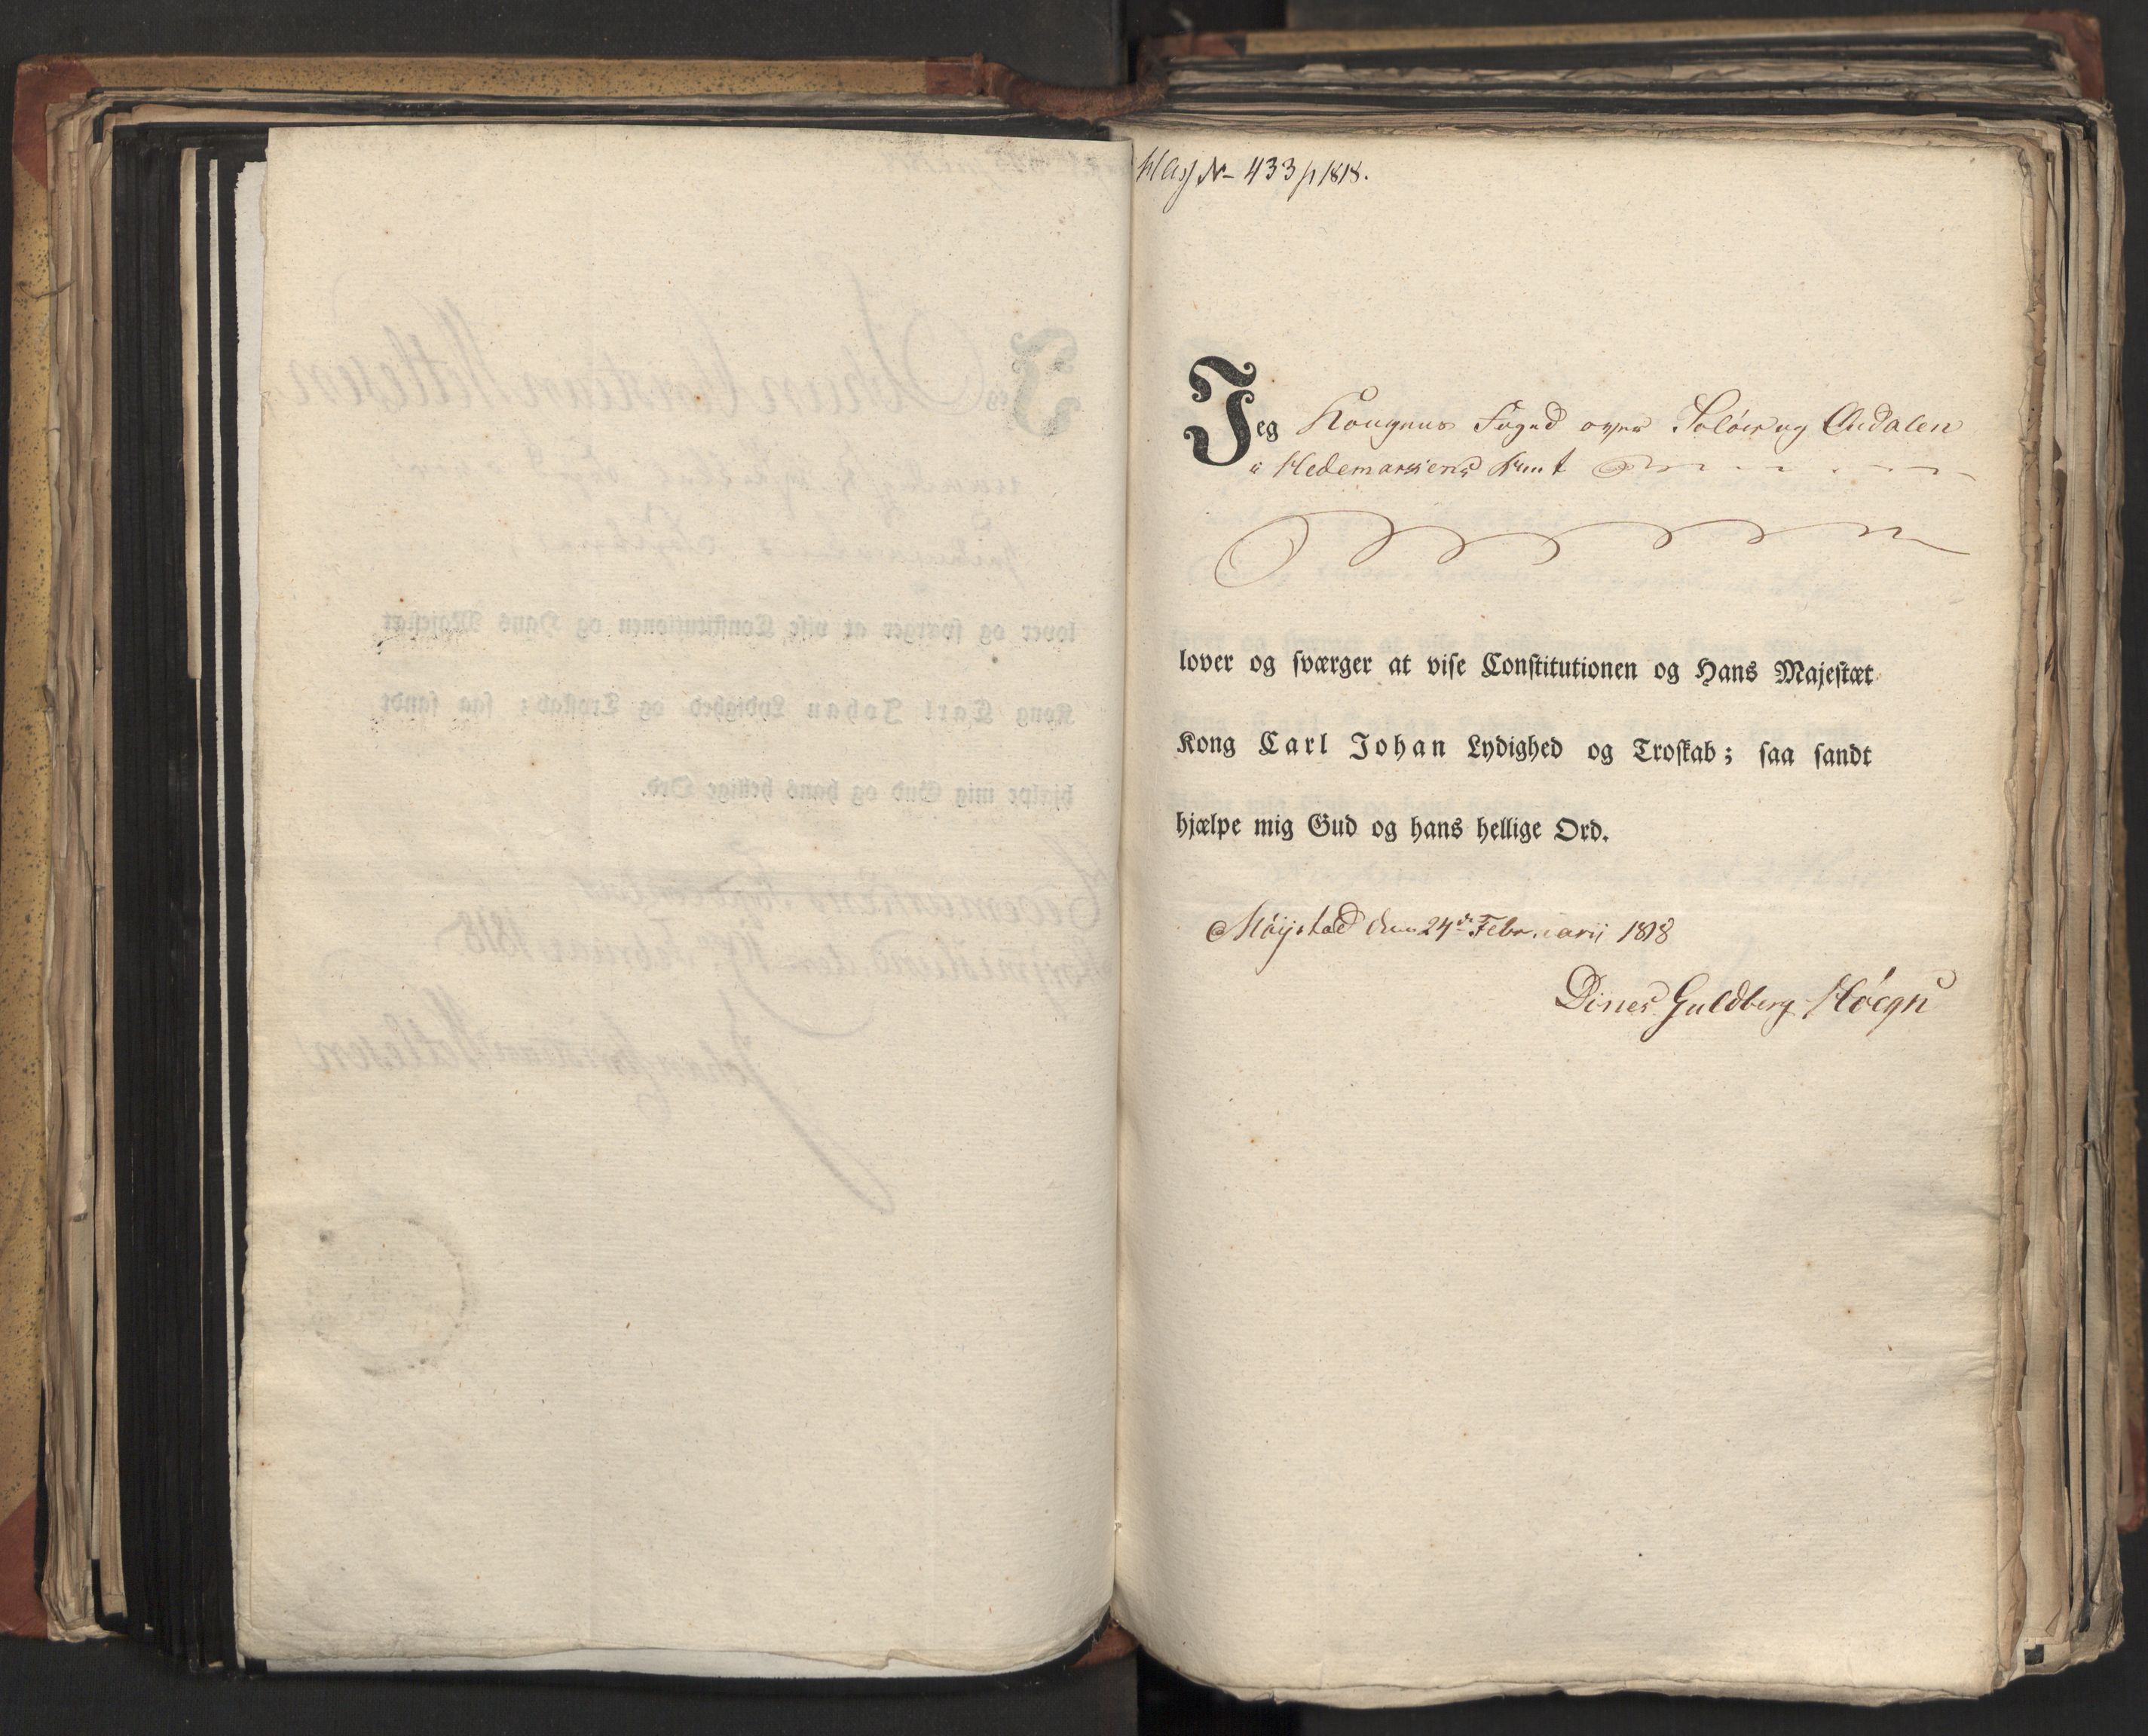 No 433/1818.
Jeg Kongens Foged over Soløer og Oudalen
i Hedemarkens Amt
lover og sværger at vise Constitutionen og Hans Majestæt
Kong Carl Johan Lydighed og Troskab; saa sandt
hjælpe mig Gud og hans hellige Ord.
Møystad den 24de Februarii 1818
Dines Guldberg Høegh